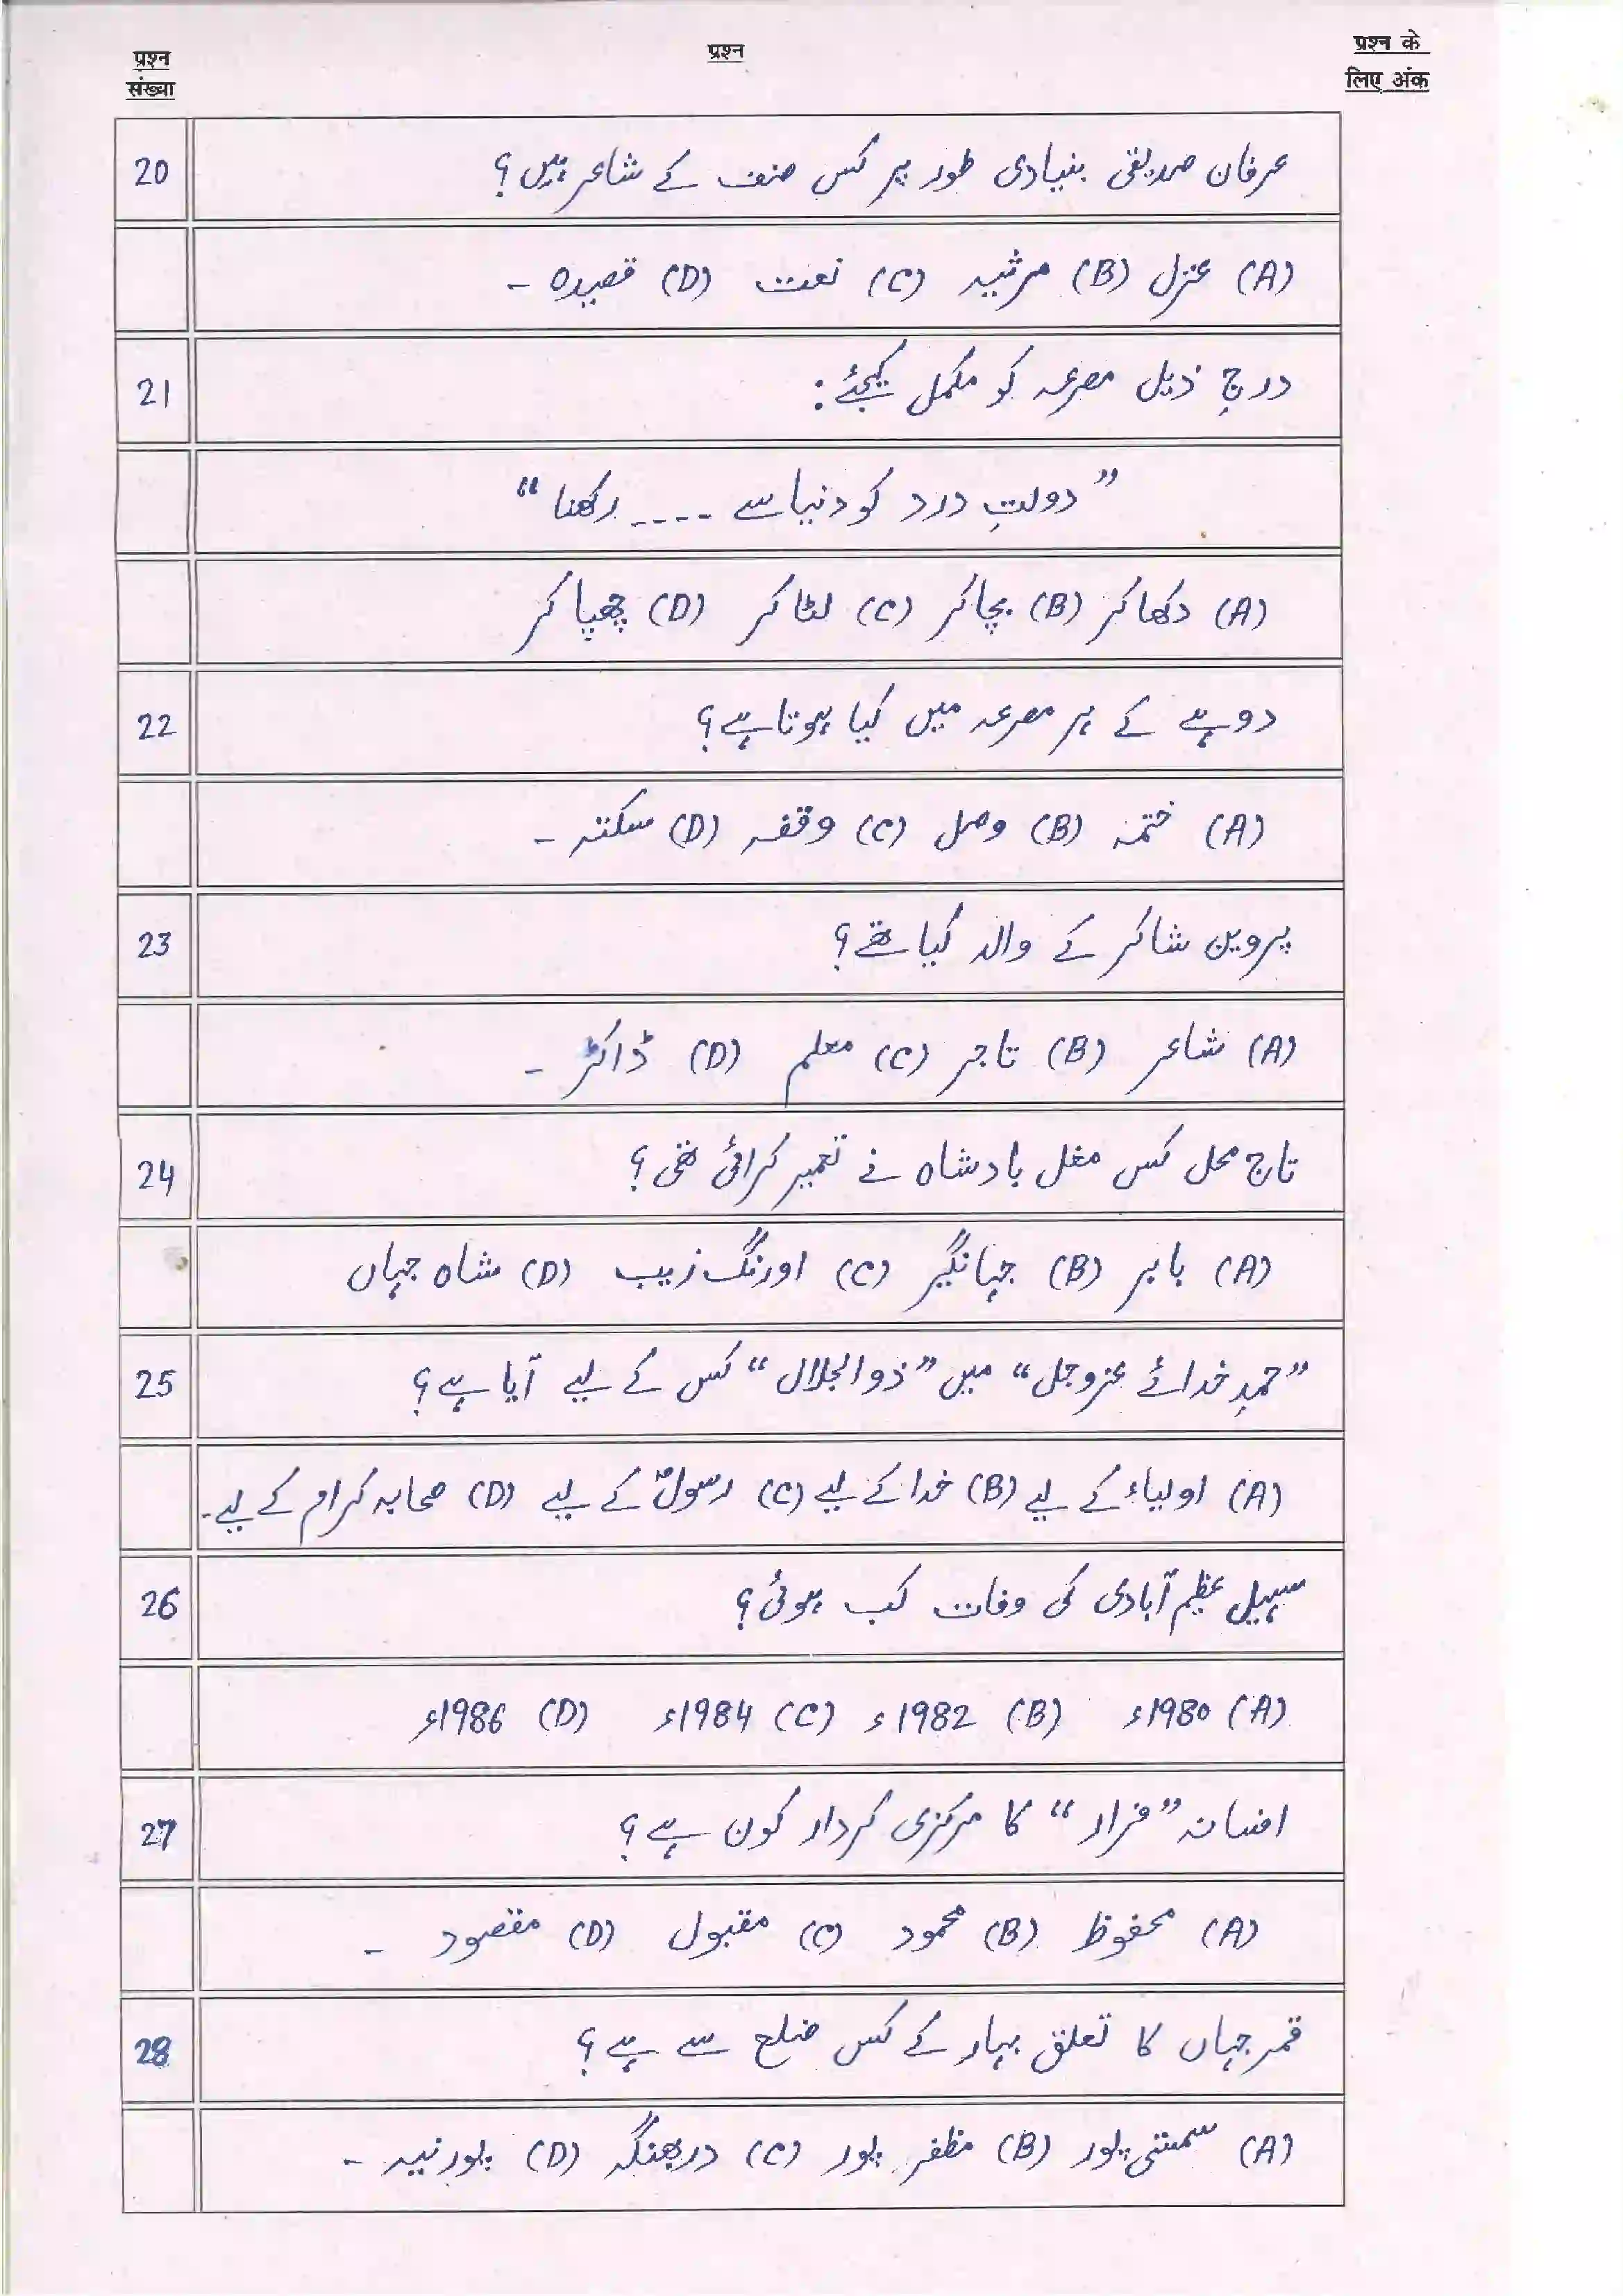 प्रश्न संख्या
प्रश्न
प्रश्न के लिए अंक
20 عرفان صدیقی بنیادی طور پر کس صنف کے شاعر ہیں؟
(A) غزل (B) مرثیہ (C) نعت (D) قصیدہ -
21 درجِ ذیل مصرعہ کو مکمل کیجئے:
”دولتِ درد کو دنیا سے ---- رکھنا“
(A) دکھا کر (B) بچا کر (C) لٹا کر (D) چھپا کر
22 دوہے کے ہر مصرعہ میں کیا ہوتا ہے؟
(A) ختمہ (B) وصل (C) وقفہ (D) سکتہ -
23 پروین شاکر کے والد کیا تھے؟
(A) شاعر (B) تاجر (C) معلم (D) ڈاکٹر -
24 تاج محل کس مغل بادشاہ نے تعمیر کرائی تھی؟
(A) بابر (B) جہانگیر (C) اورنگ زیب (D) شاہ جہاں
25 ”حمدِ خدائے عزوجل“ میں ”ذوالجلال“ کس کے لیے آیا ہے؟
(A) اولیاء کے لیے (B) خدا کے لیے (C) رسولؐ کے لیے (D) صحابہ کرام کے لیے۔
26 سہیل عظیم آبادی کی وفات کب ہوئی؟
(A) 1980ء (B) 1982ء (C) 1984ء (D) 1986ء
27 افسانہ ”فرار“ کا مرکزی کردار کون ہے؟
(A) محفوظ (B) محمود (C) مقبول (D) مقصود -
28 قمر جہاں کا تعلق بہار کے کس ضلع سے ہے؟
(A) سمستی پور (B) مظفر پور (C) دربھنگہ (D) پورنیہ -